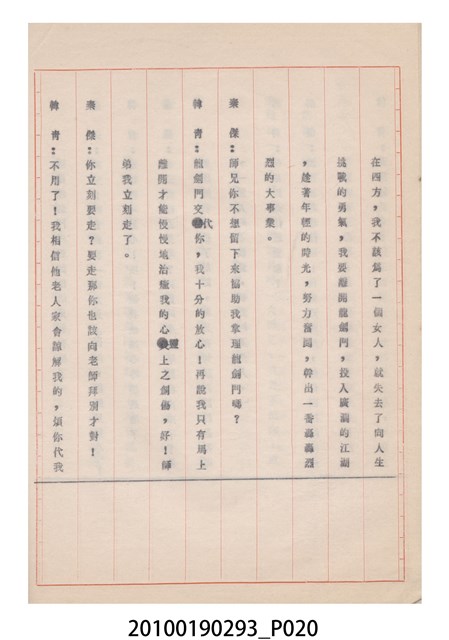 在四方,我不該爲了一個女人,就失去了向人生
挑戰的勇氣,我要離開龍劍門,投入廣濶的江湖
,趁著年輕的時光,努力奮鬪,幹出一番轟轟烈
烈的大事業。
秦 傑:師兄你不想留下來協助我掌理龍劍門嗎?
韓 青:龍劍門交代你,我十分的放心!再說我只有馬上
離開才能慢慢地治癒我的心靈上之創傷,好!師
弟我立刻走了。
秦 傑:你立刻要走?要走那你也該向老師拜別才對!
韓 青:不用了!我相信他老人家會諒解我的,煩你代我
20100190293_P020